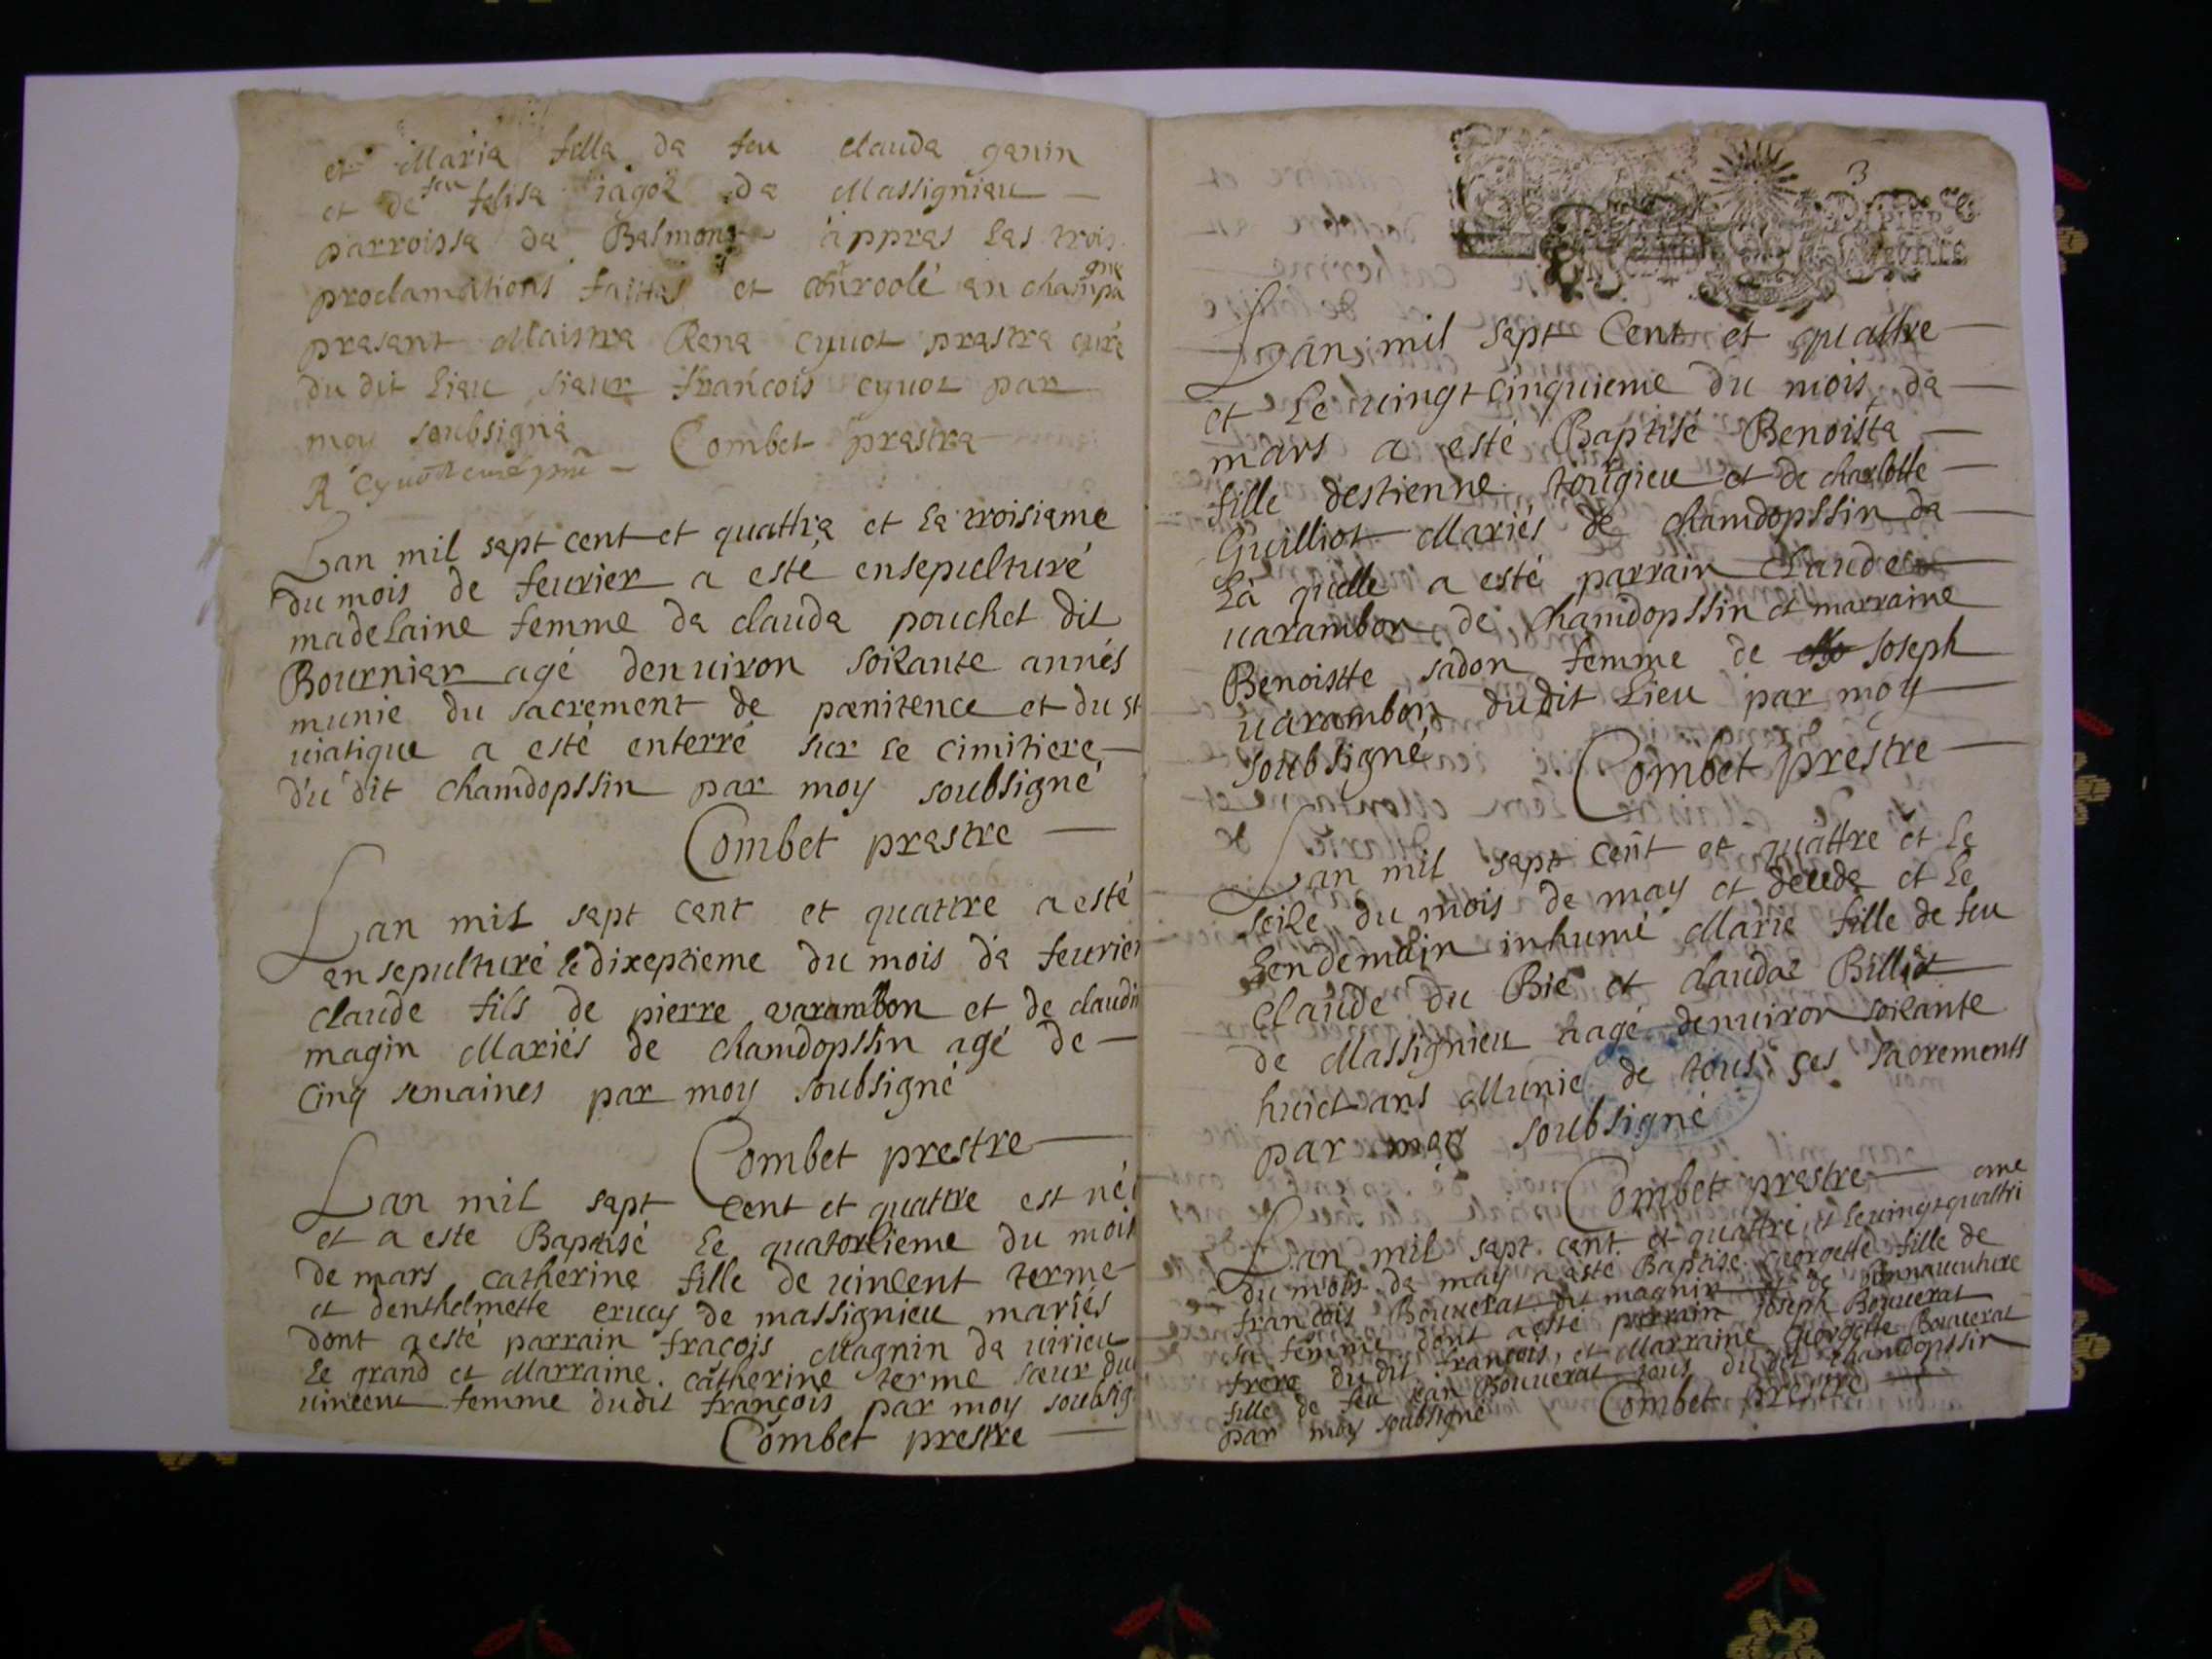 et Maria filla da feu clauda ganin
et de feu felisa iagoz da Massigniau
parroissa da Balmont appras Las trois
proclamations faittas et controolé an champagne
prasant Maistra Rena cyuot prastra curé
du dit Liau siaur françois cyuot par
moy soubsigna Combet prastra
R Cyuot curé
Lan mil sapt cent et quattra et La troisiame
du mois de feurier a esté ensepulturé
madelaine femme da clauda pouchet dit
Bourniar agé denuiron soixante annés
munie du sacrement de pœnitence et du st
uiatique a esté enterré sur Le cimitiere
du dit chamdopssin par moy soubsigné
Combet prastre
Lan mil sapt cant et quattre a esté
ansepulturé le dixeptieme du mois da feurier
claude fils de pierre varambon et de claudin
magin Mariés de chamdopssin agé de
cinq semaines par moy soubsigné
Combet prestre
Lan mil sapt cent et quattre est né
et a este Baptisé Le quatorzieme du mois
de mars catherine fille de uincent terme
et denthelmette eruay de massignieu mariés
dont a esté parrain fraçois Magnin da uirieu
Le grand et Marraine catherine terme sœur du
uincent femme dudit françois par moy soubsig
Combet prestre
3
Lan mil sapt Cent et quattre
et Le uingt cinquieme du mois da
mars a esté Baptisé Benoista
fille destienne tougieu et de charlotte
Guilliot Mariés de chamdopssin da
La quelle a esté parrain Claude
uarambon de chamdopssin et marraine
Benoistte sadon femme de Joseph
uarambon dudit Lieu par moy
soubsigné Combet prestre
Lan mil sapt cent et quattre et Le
seize du mois de may et decede et Le
Lendemain inhumé Marie fille de feu
claude du Bie et claudaz Billiat
de Massignieu aagé denuiron soixante
huict ans Munie de tous ses sacrements
par moy soubsigné
Combet prastre
Lan mil sapt cant et quattre et Le uingt quattriome
du mois da may a asté Baptisé Georgette fille de
francois Bouuerat dit magnin de Bonnauenture
sa femme dont a esté parrain Joseph Bouuerat
frere du dit françois, et Marraine Georgette Bouuerat
fille de feu jean Bouuerat tous du dit chamdopssin
par moy soubsigné Combet prestre